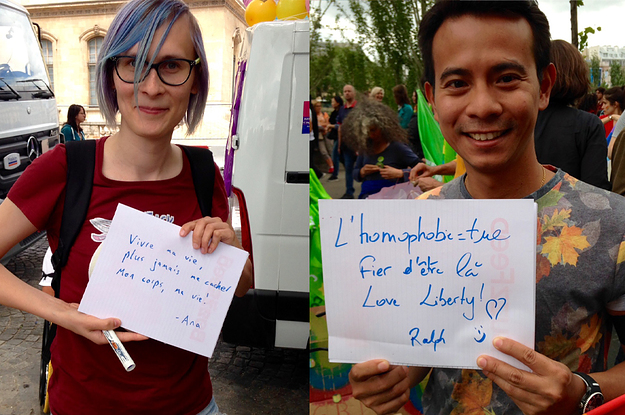 Vivre ma vie,
plus jamais me cacher
Mon corps, ma vie!
- Ana
L'homophobie = tue
Fier d'être là
Love Liberty!
Ralph